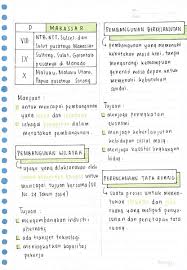 D MAKASSAR
VIII NTB, NTT, Sulsel dan
Sulut pusatnya Makassar
IX Sulteng, Sulut, Gorontalo
pusatnya di Manado
X Maluku, Maluku Utara,
Papua pusatnya Sorong
Manfaat :
untuk mencapai pembangunan
yang dan
PEMBANGUNAN WILAYAH
upaya yang dilaksanakan oleh
untuk
mencapai tujuan bersama (UU
No. 24 Tahun
Tujuan :
mengembangkan industri
ada transfer teknologi
meningkatkan kapasitas
pekerja
PEMBANGUNAN BERKELANJUTAN
pembangunan yang memenuhi
kebutuhan masa kini, tanpa
mengurangi kemampuan
generasi masa depan untuk
memenuhi kebutuhannya
Tujuan :
menjaga peningkatan
ekonomi
menjaga keberlanjutan
kehidupan sosial masy.
menjaga kualitas lingkungan
hidup.
PERENCANAAN TATA RUANG
suatu proses untuk menen-
tukan dan
ruang yang meliputi penyu-
sunan dan penetapan
tata ruang